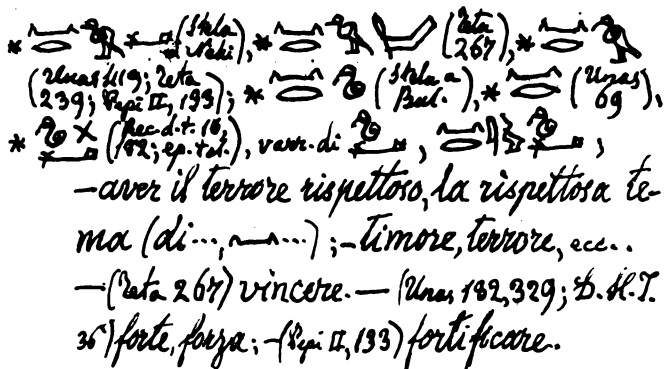 * 𓈖𓂋 (Stela di Neki), * 𓈖𓂋 (Teta 267), * 𓈖𓂋
(Unas 419; Teta 239; Pepi II, 133); * 𓈖𓂋 (Stela a Bul.), * 𓈖𓂋 (Unas 69),
* (Rec. d. t. 16, 182; ep. tol.), varr. di , ,
—aver il terrore rispettoso, la rispettosa te-
ma (di..., 𓈖...); —timore, terrore, ecc..
—(Teta 267) vincere. — (Unas 182, 329; D.H.T.
36) forte, forza; —(Pepi II, 133) fortificare.